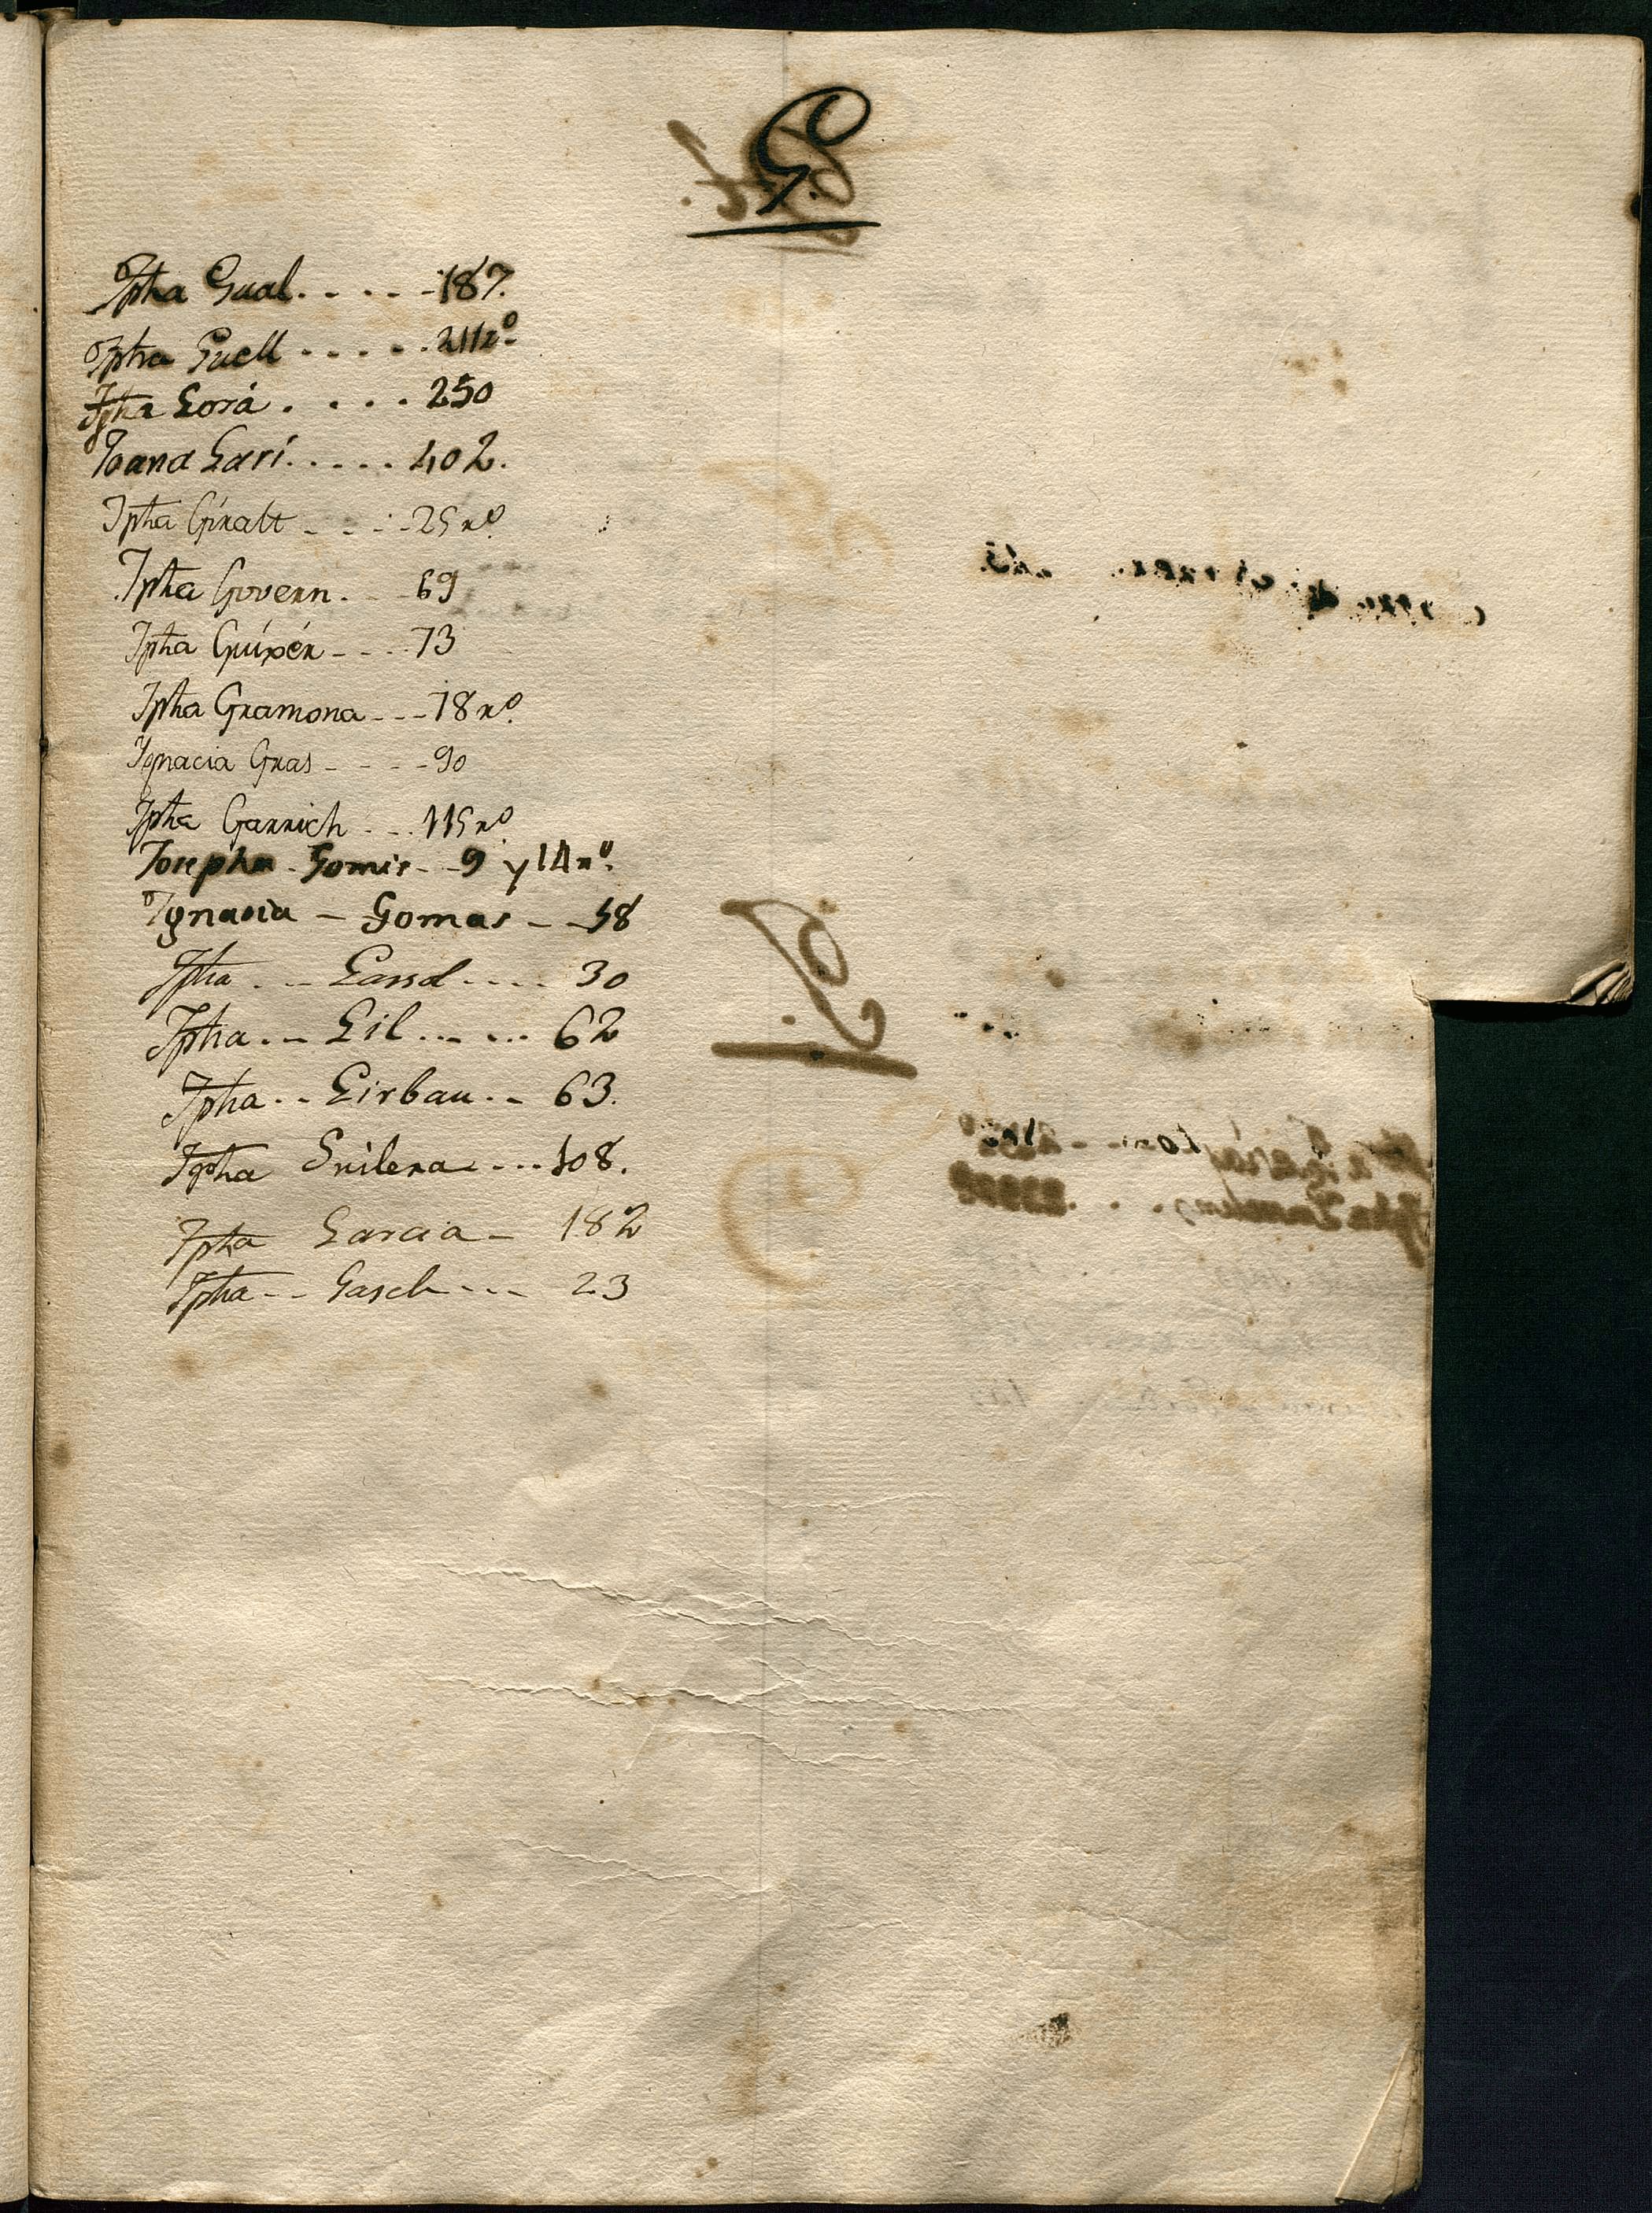 G.
Jpha Gual. . . . . - 187.
Jpha Guell . . . . . . 211 rº.
Jpha Gorá . . . . . 250
Joana Garí. . . . . . 402.
Jpha Giralt - - - - 25 rº.
Jpha Govern. - - 69
Jpha Guixér - - - 73
Jpha Gramona - - - 78 rº.
Ignacia Gras - - - - 90
Jpha Garrich - - . 115 rº
Josepha - Gomis - - 9 y 14 rº.
Ignacia - Gomas - - 58
Jpha . - - Gassol - - . . 30
Jpha . - - Gil . . . . . . . 62
Jpha . - - Girbau . . - 63.
Jpha Guilera - - - - 108.
Jpha Garcia - 182
Jpha - - Gasch - - - 23